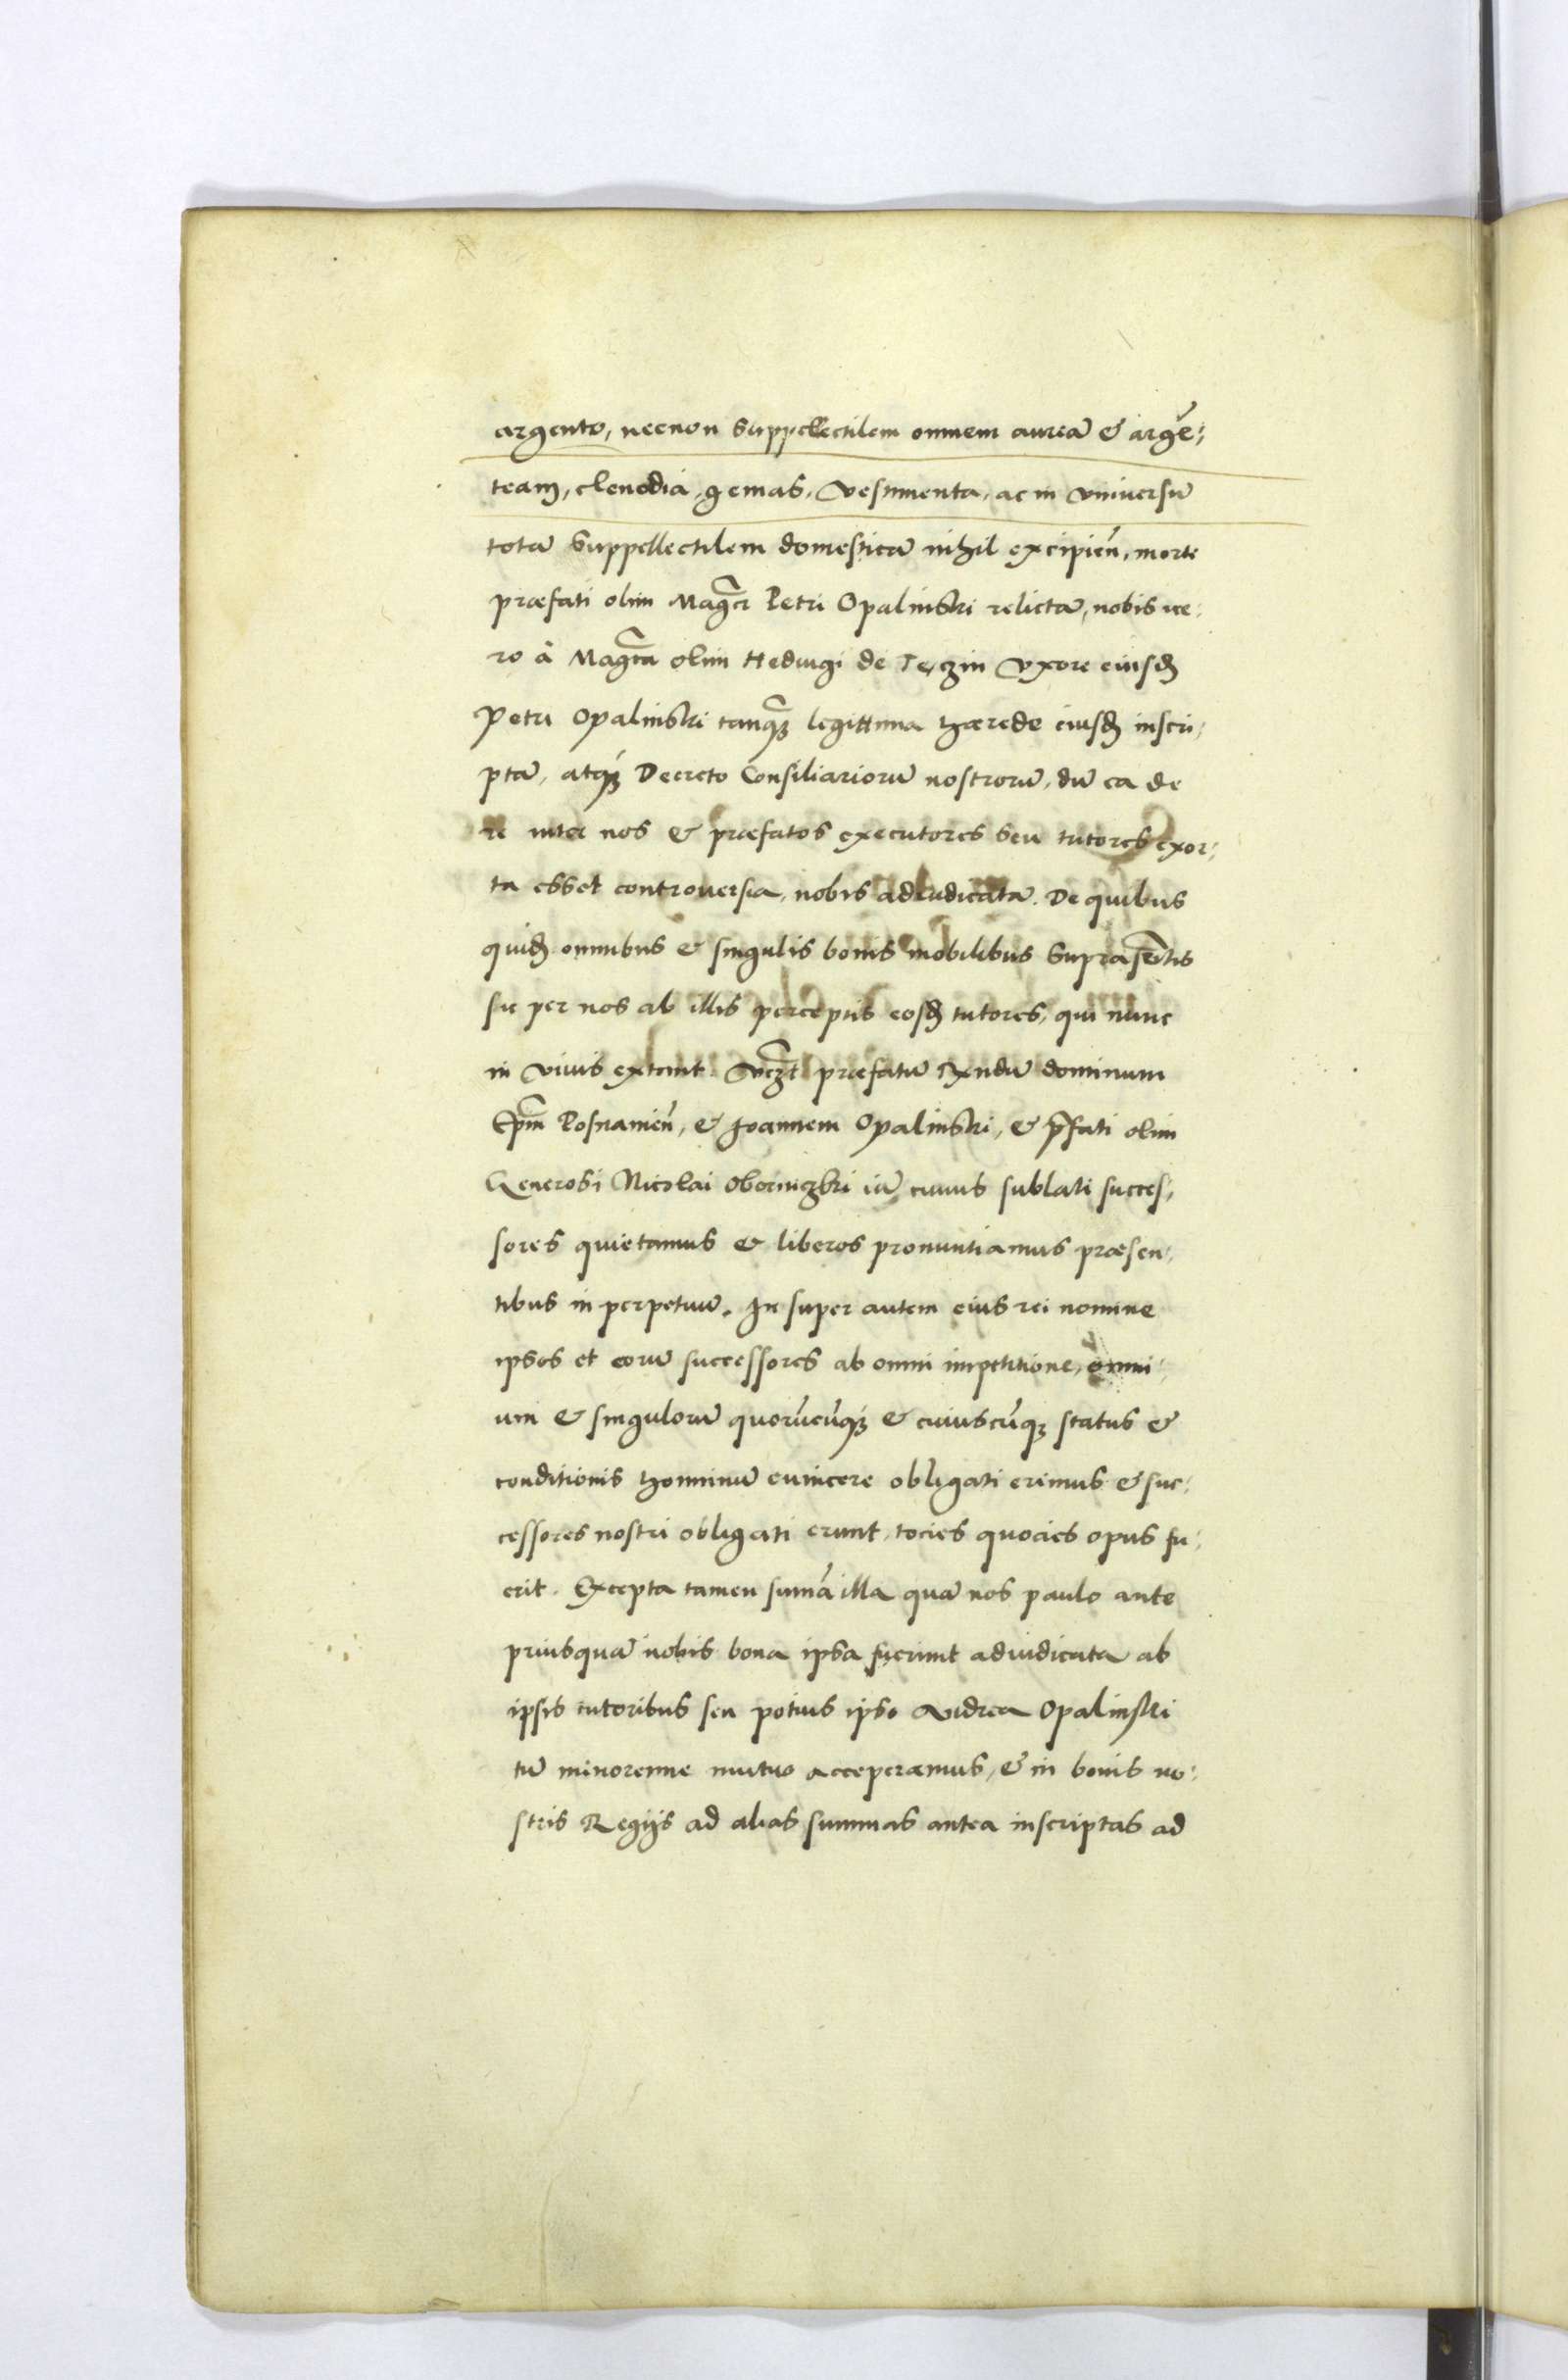 argento, necnon suppellectilem omnem aureā & argē,
team, clenodia, gemas, Vestimenta, ac in Vniversū
totā suppellectilem domesticā nihil excipieñ, morte
præfati olim Mag͞ci Petri Opalinski relictā, nobis ve,
ro à Mag͞ca olim Hedvigi de Tęczin Vxore eiusdē
Petri Opalinski tanq̃ꝫ legittima hærede eiusdē inscri,
ptā, atq́ꝫ Decreto Consiliariorū nostrorū, dū ea de
re inter nos & præfatos executores seu tutores exor,
ta esset controversia, nobis adiudicatā. De quibus
quidē omnibus & singulis bonis mobilibus supras͞ctis
sic per nos ab illis perceptis eosdē tutores, qui nunc
in vivis extant. vcꝫt præfatū Rxndū dominum
Ep͞m Posnanieñ, & Joannem Opalinski, & p͞fati olim
Generosi Nicolai Oborniczki iā e vivis sublati succes,
sores quietamus & liberos pronuntiamus præsen,
tibus in perpetuū. In super autem eius rei nomine
ipsos et eorū successores ab omni impetitione, omni,
um & singulorū quorūcūq́ꝫ & cuiuscūqꝫ status &
conditionis hominū evincere obligati erimus & suc,
cessores nostri obligati erunt, tocies quocies opus fu,
erit. Excepta tamen sumā illa quā nos paulo ante
priusquā nobis bona ipsa fuerint adiudicata ab
ipsis tutoribus seu potius ipso Andrea Opalinski
tū minorenne mutuo acceperamus, & in bonis no,
stris Regijs ad alias summas antea inscriptas ad